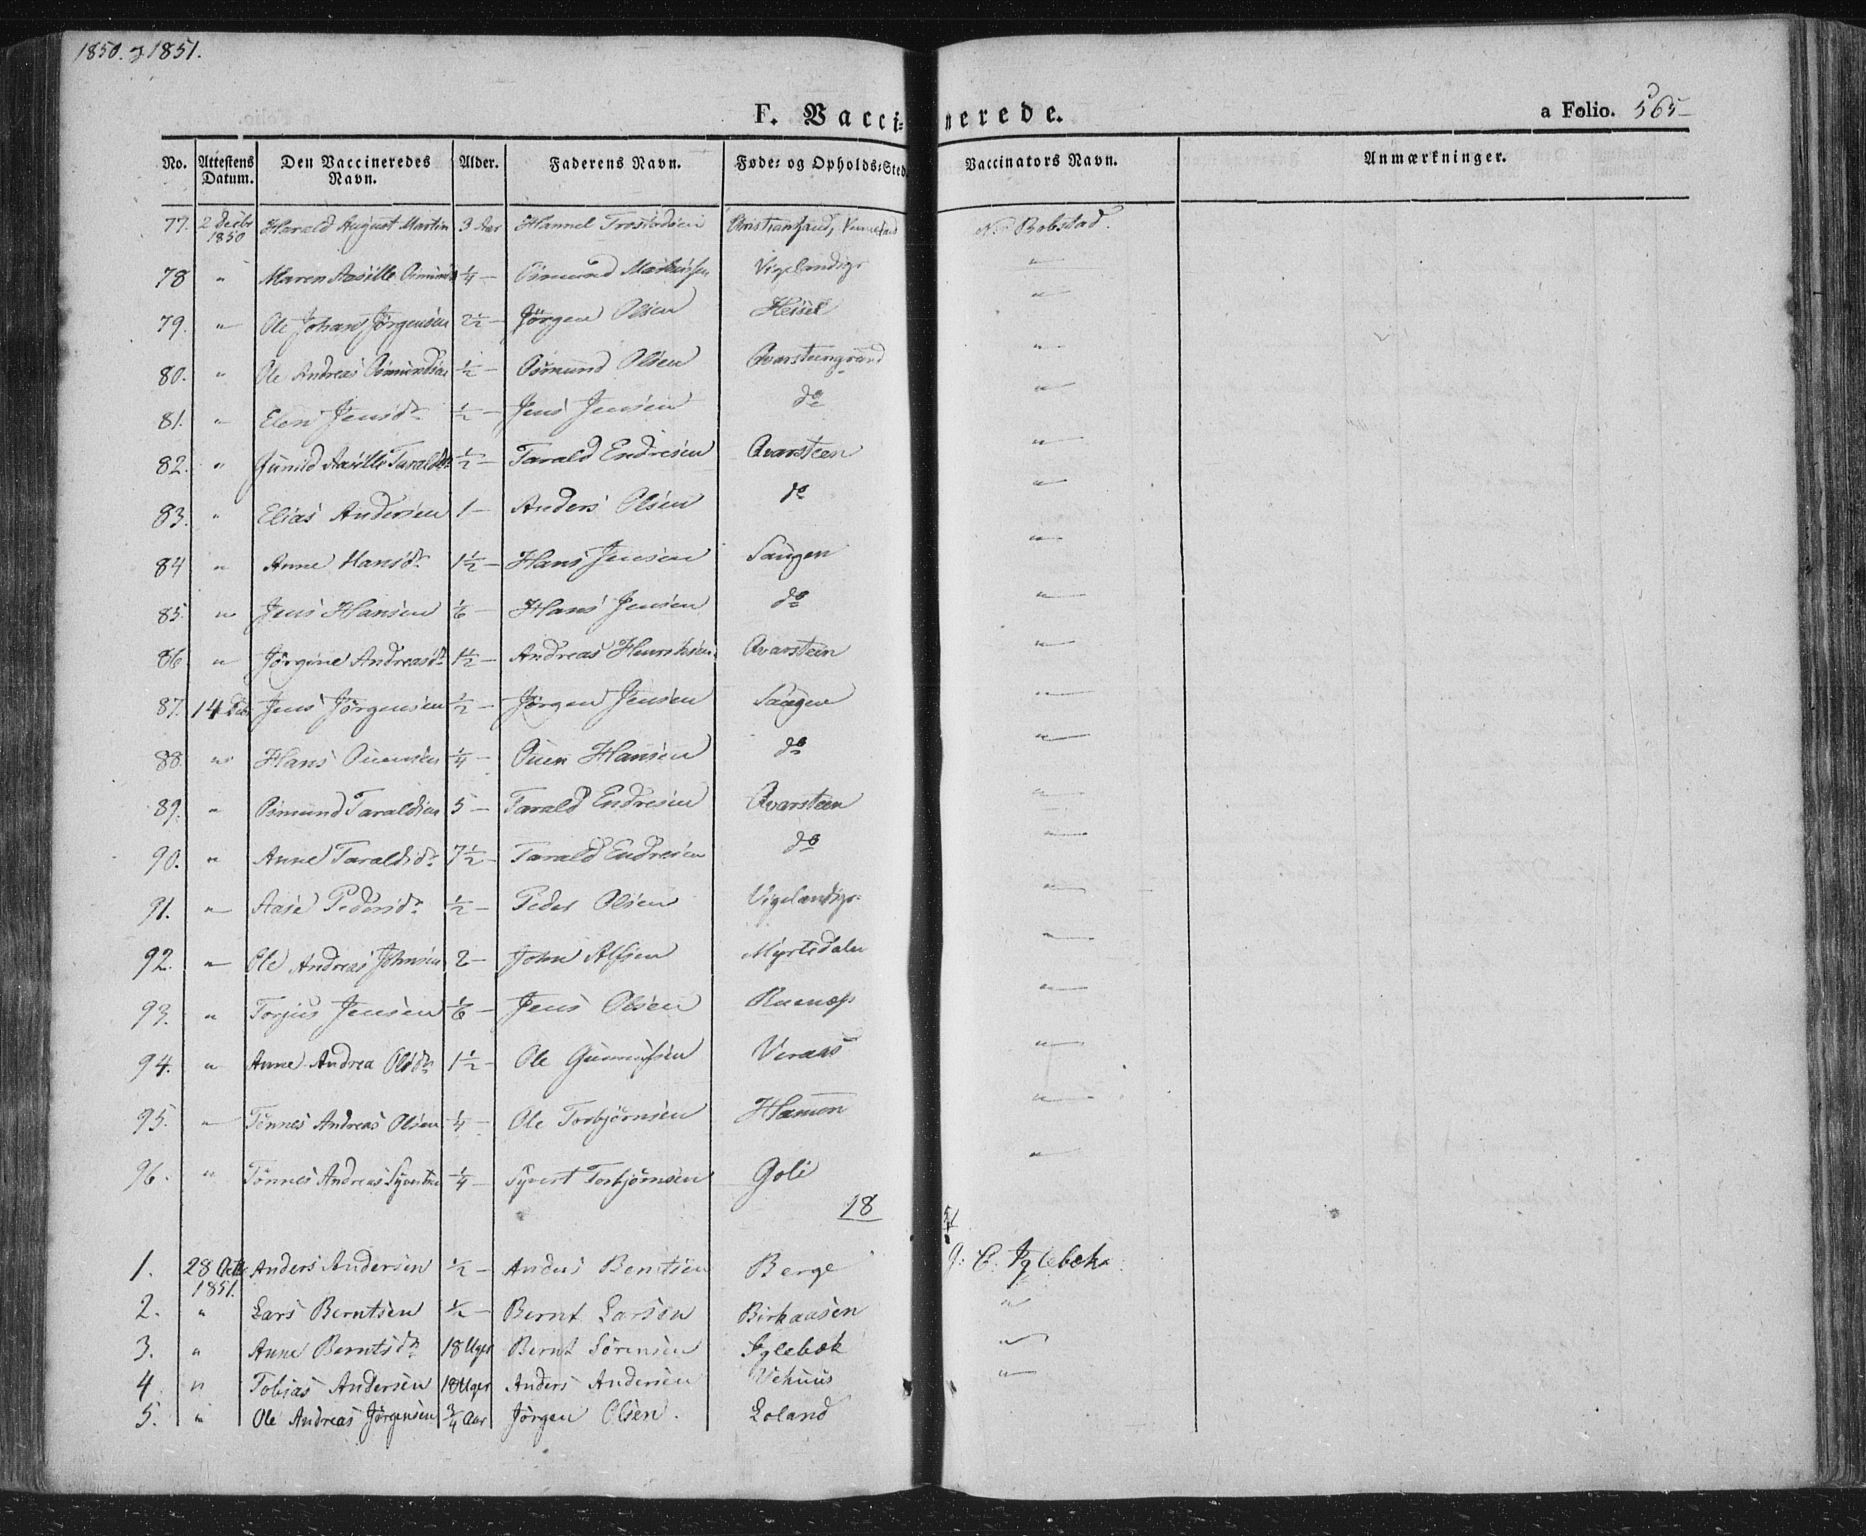 1850. & 1851.
F. Vaccinerede.
a Folio. 565
No. Attestens Datum. Den Vaccineredes Navn. Alder. Faderens Navn. Føde- og Opholds-Sted Vaccinators Navn. Anmærkninger.
77. 2 Decbr 1850 Harald August Martin 3 Aar Christiansand, Bobstad.
78 " Maren Aasille ¼ — Osmund Vigelandsgr "
79. " Ole Johan Jørgensen 2½ — Jørgen Olsen Heisel "
80. " Ole Andreas Osmundsen ½ — Osmund Olsen Qvarsteengrund "
81. " Elen Jensdr ½ — Jens Jensen do "
82. " Gunild Aasille Taraldsdr ½ — Tarald Endresen Qvarsteen "
83. " Elias Andersen 1 — Anders Olsen do "
84 " Anne Hansdr 1½ — Hans Jensen Saugen "
85. " Jens Hansen ⅙ — Hans Jensen do "
86 " Jørgine Andreasdr 1½ — Andreas Henriksen Qvarstein "
87. 14 Decbr Jens Jørgensen ½ — Jørgen Jensen Saugen "
88. " Hans Ouensen ¼ — Ouen Hansen do "
89. " Osmund Taraldsen 5 — Tarald Endresen Qvarsteen "
90. " Anne Taraldsdr 7½ — Tarald Endresen do "
91. " Aase Pedersdr ½ — Peder Olsen Vigelandsgr: "
92. " Ole Andreas Johnsen 2 — John Alfsen Myrtedalen "
93. " Torjus Jensen ⅙ — Jens Olsen "
94. " Anne Andrea Olsdr 1½ — Ole Gunnufsen Veraas "
95. " Tønnes Andreas Olsen ¼ — Ole Torbjørnsen Hamren "
96. " Tønnes Andreas Syvertsen ¼ — Syvert Torbjørnsen Goli "
18 51
1. 28 Octb 1851. Anders Andersen ½ — Anders Berntsen Berge G. C. Iglebæk.
2. " Lars Berntsen ½ — Bernt Larsen Birkaasen "
3. " Anne Berntsdr 18 Uger Bernt Sørensen Iglebæk "
4 " Tobias Andersen 18 Uger Anders Andersen Vehuus "
5. " Ole Andreas Jørgensen ¾ Aar Jørgen Olsen. Loland